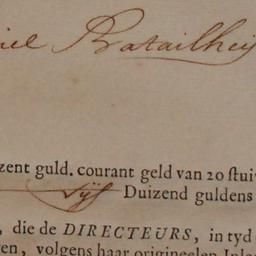 iel Batailhey
zent guld. courant geld van 20 stuiv
Vijf Duizend guldens
, die de DIRECTEURS, in tyd
en, volgens haar origineelen Inleg